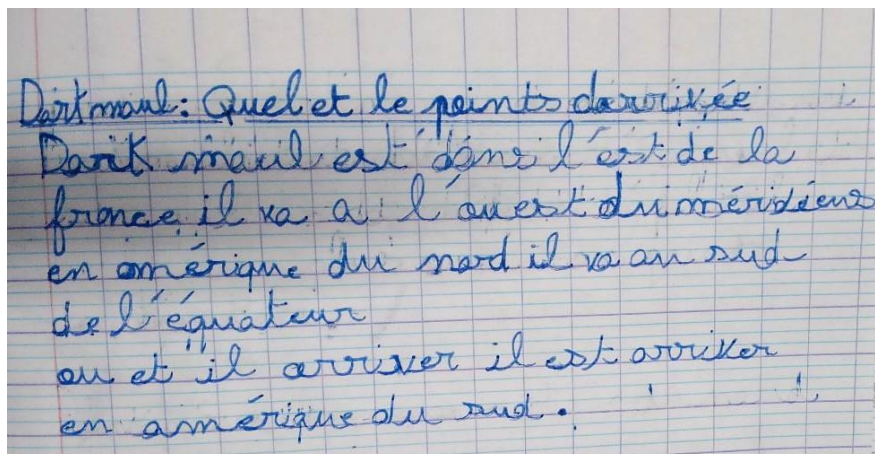 Dark maul : Quel et le points darrivée
Dark maul est dans l'est de la
france il va a l'ouest du méridiens
en amérique du nord il va au sud
de l'équateur
ou et il arriver il est arriver
en amérique du sud.